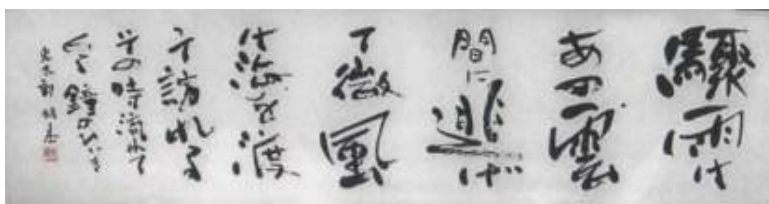 驟雨は
あの雲
間に逃げ
て微風
は海を渡
て訪れる
その時流れて
くる鐘のひびき